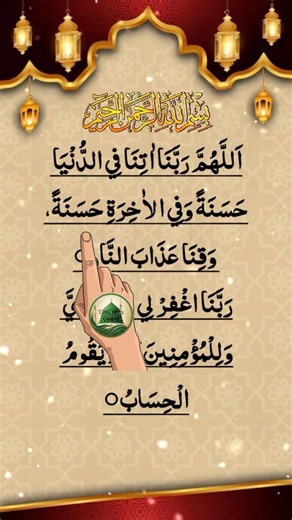 بِسْمِ اللهِ الرَّحْمٰنِ الرَّحِيْمِ
اَللّٰهُمَّ رَبَّنَا اٰتِنَا فِي الدُّنْيَا
حَسَنَةً وَفِي الْاٰخِرَةِ حَسَنَةً،
وَقِنَا عَذَابَ
رَبَّنَا اغْفِرْ لِي
وَلِلْمُؤْمِنِينَ يَقُومُ
الْحِسَابُ○